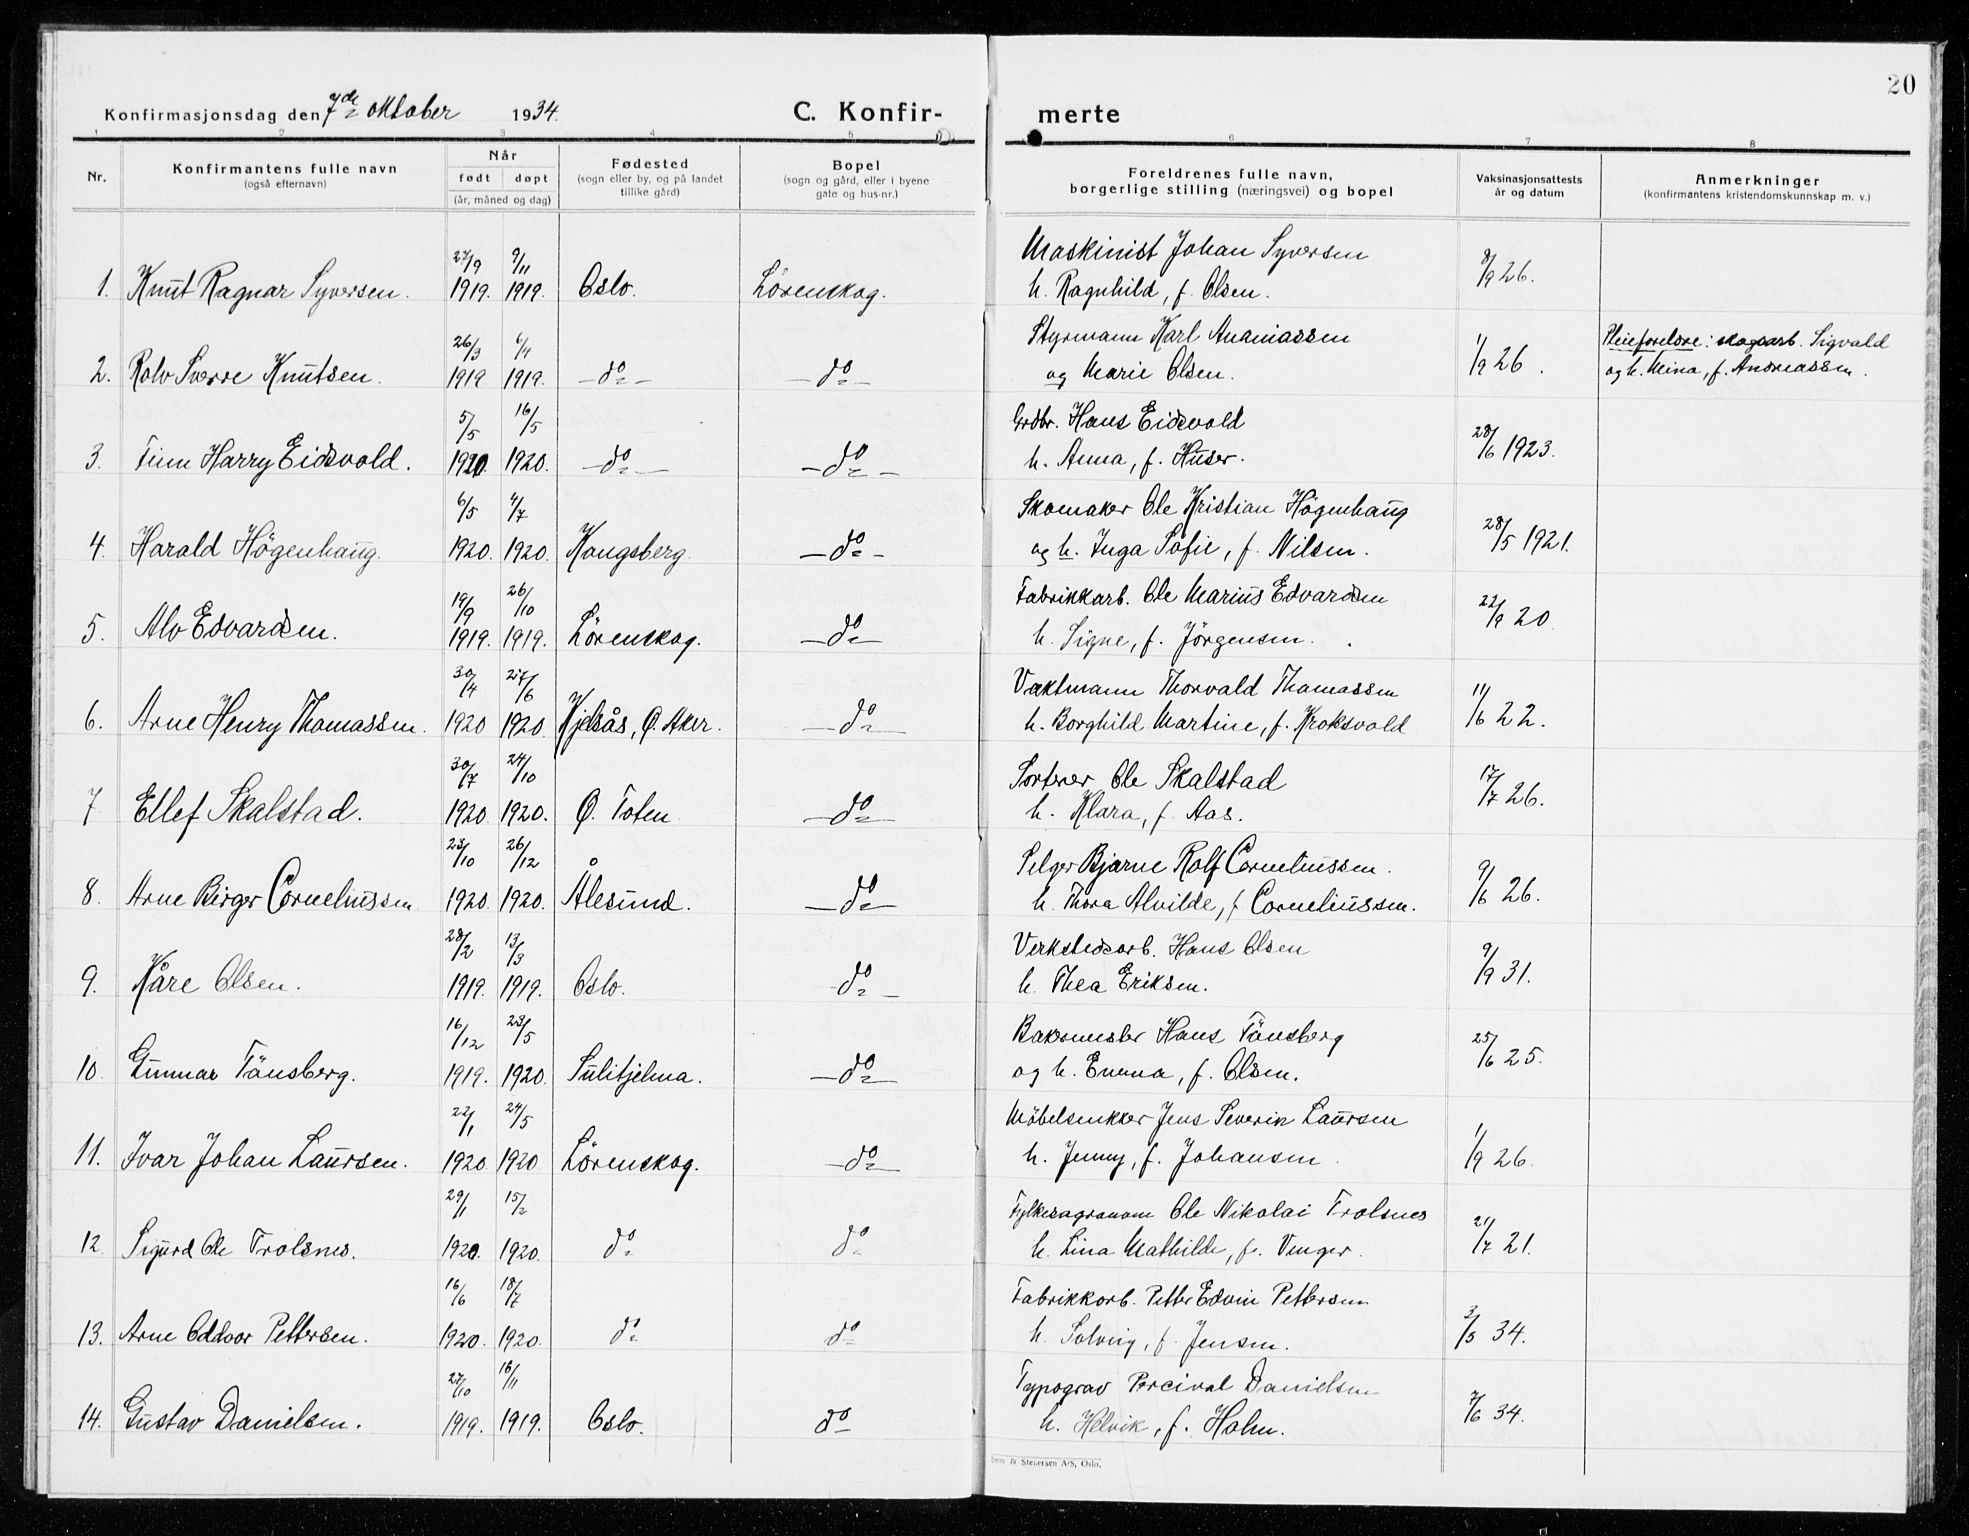 20
Konfirmasjonsdag den 7de oktober 1934. C. Konfir- merte
1 2 3 4 5 6 7 8
Nr. Konfirmantens fulle navn (også efternavn) Når født døpt (år, måned og dag) Fødested (sogn eller by, og på landet tillike gård) Bopel (sogn og gård, eller i byene gate og hus-nr.) Foreldrenes fulle navn, borgerlige stilling (næringsvei) og bopel Vaksinasjonsattests år og datum Anmerkninger (konfirmantens kristendomskunnskap m. v.)
27/9 9/11 Maskinist Johan Syversen
1. Knut Ragnar Syversen. 1919. 1919. Oslo. Lörenskog. h. Ragnhild, f. Olsen. 8/9 26.
26/3 6/4 Styrmann Karl Ananiassen Pleieforeldre: skogsarb. Sigvald
2. Rolv Sverre Knutsen. 1919 1919. do do og Marie Olsen. 1/9 26. og h. Mina, f. Andreassen.
5/5 16/5 Grdbr. Hans Eidsvold
3. Finn Harry Eidsvold. 1920 1920. do do h. Anna, f. Huser. 28/6 1923.
6/5 4/7 Skomaker Ole Kristian Högenhaug
4. Harald Högenhaug. 1920. 1920. Kongsberg. do og h. Inga Sofie, f. Nilsen. 28/5 1921.
19/9 26/10 Fabrikkarb. Ole Marius Edvardsen
5. Alv Edvardsen. 1919. 1919. Lörenskog. do h. Signe, f. Jörgensen. 22/9 20
30/4 27/6 Vaktmann Thorvald Thomassen
6. Arne Henry Thomassen. 1920 1920 Kjelsås, Ø. Aker. do h. Borghild Martine, f. Kroksvold 11/6 22.
30/7 24/10 Sorterer Ole Skalstad
7 Ellef Skalstad. 1920 1920. Ø. Toten do h. Klara, f. Aas. 17/7 26.
23/10 26/12 Selger Bjarne Rolf Corneliussen.
8. Arne Birger Corneliussen 1920 1920. Ålesund. do h. Thora Alvilde, f Corneliussen. 9/6 26.
28/2 13/3 Verkstedsarb. Hans Olsen
9. Kåre Olsen. 1919. 1919. Oslo. do h. Thea Eriksen. 9/9 31.
16/12 23/5 Baksmester Hans Tönsberg
10. Gunnar Tönsberg. 1919. 1920. Sulitjelma. do og h. Emma, f. Olsen. 25/6 25.
22/1 24/5 Möbelsnekker Jens Severin Laursen
11. Ivar Johan Laursen. 1920 1920 Lörenskog. do h. Jenny, f. Johansen. 1/9 26.
29/1 15/2 Fylkesagronom Ole Nikolai Trolsnes
12. Sigurd Ole Trolsnes. 1920. 1920. do do h. Lina Mathilde, f. Venger. 21/7 21.
16/6 18/7 Fabrikkarb. Petter Edvin Pettersen
13. Arne Oddvar Pettersen. 1920. 1920. do do h. Solveig, f. Jensen. 3/5 34.
27/10 16/11 Typograv Percival Danielsen
14. Gustav Danielsen. 1919. 1919. Oslo. do h. Helvik, f. Holm. 7/6 34.
& Stenersen A/S, Oslo.